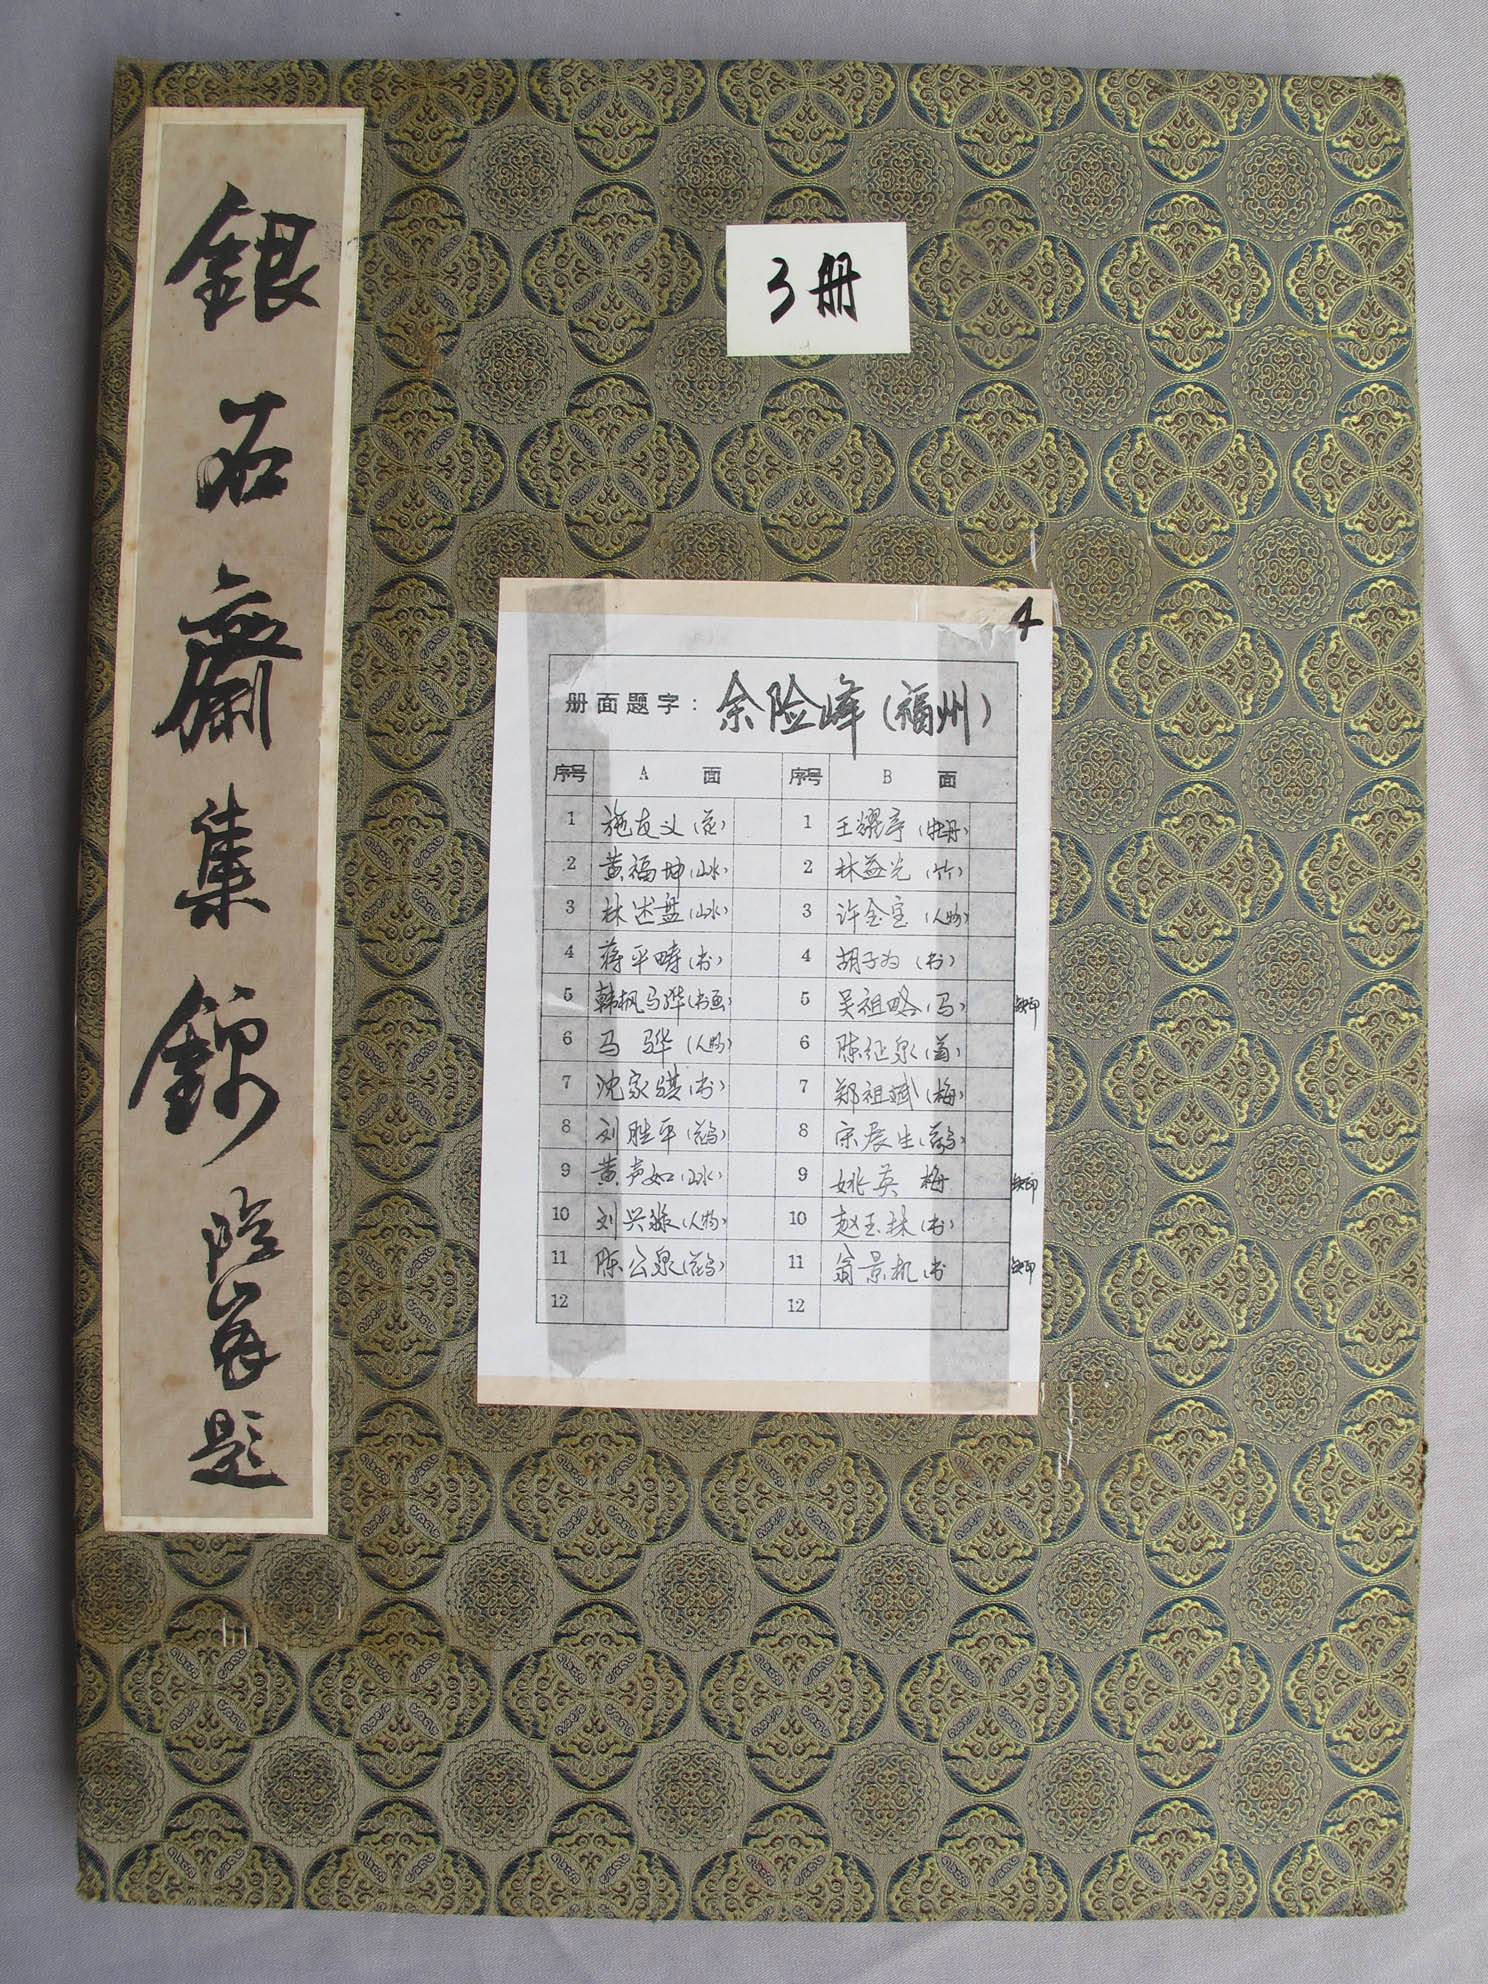 銀石齋集錦 險峯題
3册
4
册面题字：余险峰（福州）
序号 A 面 序号 B 面
1 施友义（花） 1 王耀亭（牡丹）
2 黄福坤（山水） 2 林益光（竹）
3 林述盘（山水） 3 许金宝（人物）
4 蒋平畴（书） 4 胡子为（书）
5 韩枫马骅（书画） 5 吴祖略（马） 缺印
6 马骅（人物） 6 陈征泉（菊）
7 沈家骐（书） 7 郑祖斌（梅）
8 刘胜平（花鸟） 8 宋展生（花鸟）
9 黄声如（山水） 9 姚英 梅 缺印
10 刘兴淼（人物） 10 赵玉林（书）
11 陈公泉（花鸟） 11 翁景机（书 缺印
12 12